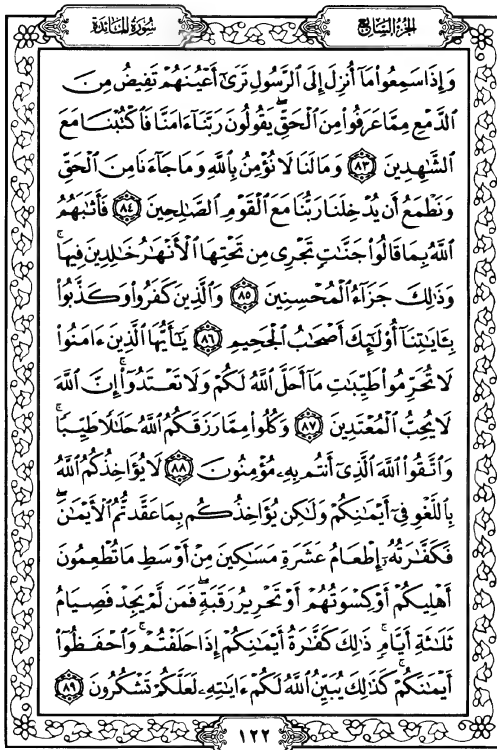 سُورَةُ المَائدَةِ
الجُزءُ السَّابِعُ
وَإِذَا سَمِعُوا۟ مَآ أُنزِلَ إِلَى ٱلرَّسُولِ تَرَىٰٓ أَعْيُنَهُمْ تَفِيضُ مِنَ
ٱلدَّمْعِ مِمَّا عَرَفُوا۟ مِنَ ٱلْحَقِّ ۖ يَقُولُونَ رَبَّنَآ ءَامَنَّا فَٱكْتُبْنَا مَعَ
ٱلشَّـٰهِدِينَ ٨٣ وَمَالَنَا لَا نُؤْمِنُ بِٱللَّهِ وَمَا جَآءَنَا مِنَ ٱلْحَقِّ
وَنَطْمَعُ أَن يُدْخِلَنَا رَبُّنَا مَعَ ٱلْقَوْمِ ٱلصَّـٰلِحِينَ ٨٤ فَأَثَـٰبَهُمُ
ٱللَّهُ بِمَا قَالُوا۟ جَنَّـٰتٍ تَجْرِى مِن تَحْتِهَا ٱلْأَنْهَـٰرُ خَـٰلِدِينَ فِيهَا ۚ
وَذَٰلِكَ جَزَآءُ ٱلْمُحْسِنِينَ ٨٥ وَٱلَّذِينَ كَفَرُوا۟ وَكَذَّبُوا۟
بِـَٔايَـٰتِنَآ أُو۟لَـٰٓئِكَ أَصْحَـٰبُ ٱلْجَحِيمِ ٨٦ يَـٰٓأَيُّهَا ٱلَّذِينَ ءَامَنُوا۟
لَا تُحَرِّمُوا۟ طَيِّبَـٰتِ مَآ أَحَلَّ ٱللَّهُ لَكُمْ وَلَا تَعْتَدُوٓا۟ ۚ إِنَّ ٱللَّهَ
لَا يُحِبُّ ٱلْمُعْتَدِينَ ٨٧ وَكُلُوا۟ مِمَّا رَزَقَكُمُ ٱللَّهُ حَلَـٰلًا طَيِّبًا ۚ
وَٱتَّقُوا۟ ٱللَّهَ ٱلَّذِىٓ أَنتُم بِهِۦ مُؤْمِنُونَ ٨٨ لَا يُؤَاخِذُكُمُ ٱللَّهُ
بِٱللَّغْوِ فِىٓ أَيْمَـٰنِكُمْ وَلَـٰكِن يُؤَاخِذُكُم بِمَا عَقَّدتُّمُ ٱلْأَيْمَـٰنَ ۖ
فَكَفَّـٰرَتُهُۥٓ إِطْعَامُ عَشَرَةِ مَسَـٰكِينَ مِنْ أَوْسَطِ مَا تُطْعِمُونَ
أَهْلِيكُمْ أَوْ كِسْوَتُهُمْ أَوْ تَحْرِيرُ رَقَبَةٍ ۖ فَمَن لَّمْ يَجِدْ فَصِيَامُ
ثَلَـٰثَةِ أَيَّامٍ ۚ ذَٰلِكَ كَفَّـٰرَةُ أَيْمَـٰنِكُمْ إِذَا حَلَفْتُمْ ۚ وَٱحْفَظُوٓا۟
أَيْمَـٰنَكُمْ ۚ كَذَٰلِكَ يُبَيِّنُ ٱللَّهُ لَكُمْ ءَايَـٰتِهِۦ لَعَلَّكُمْ تَشْكُرُونَ ٨٩
١٢٢